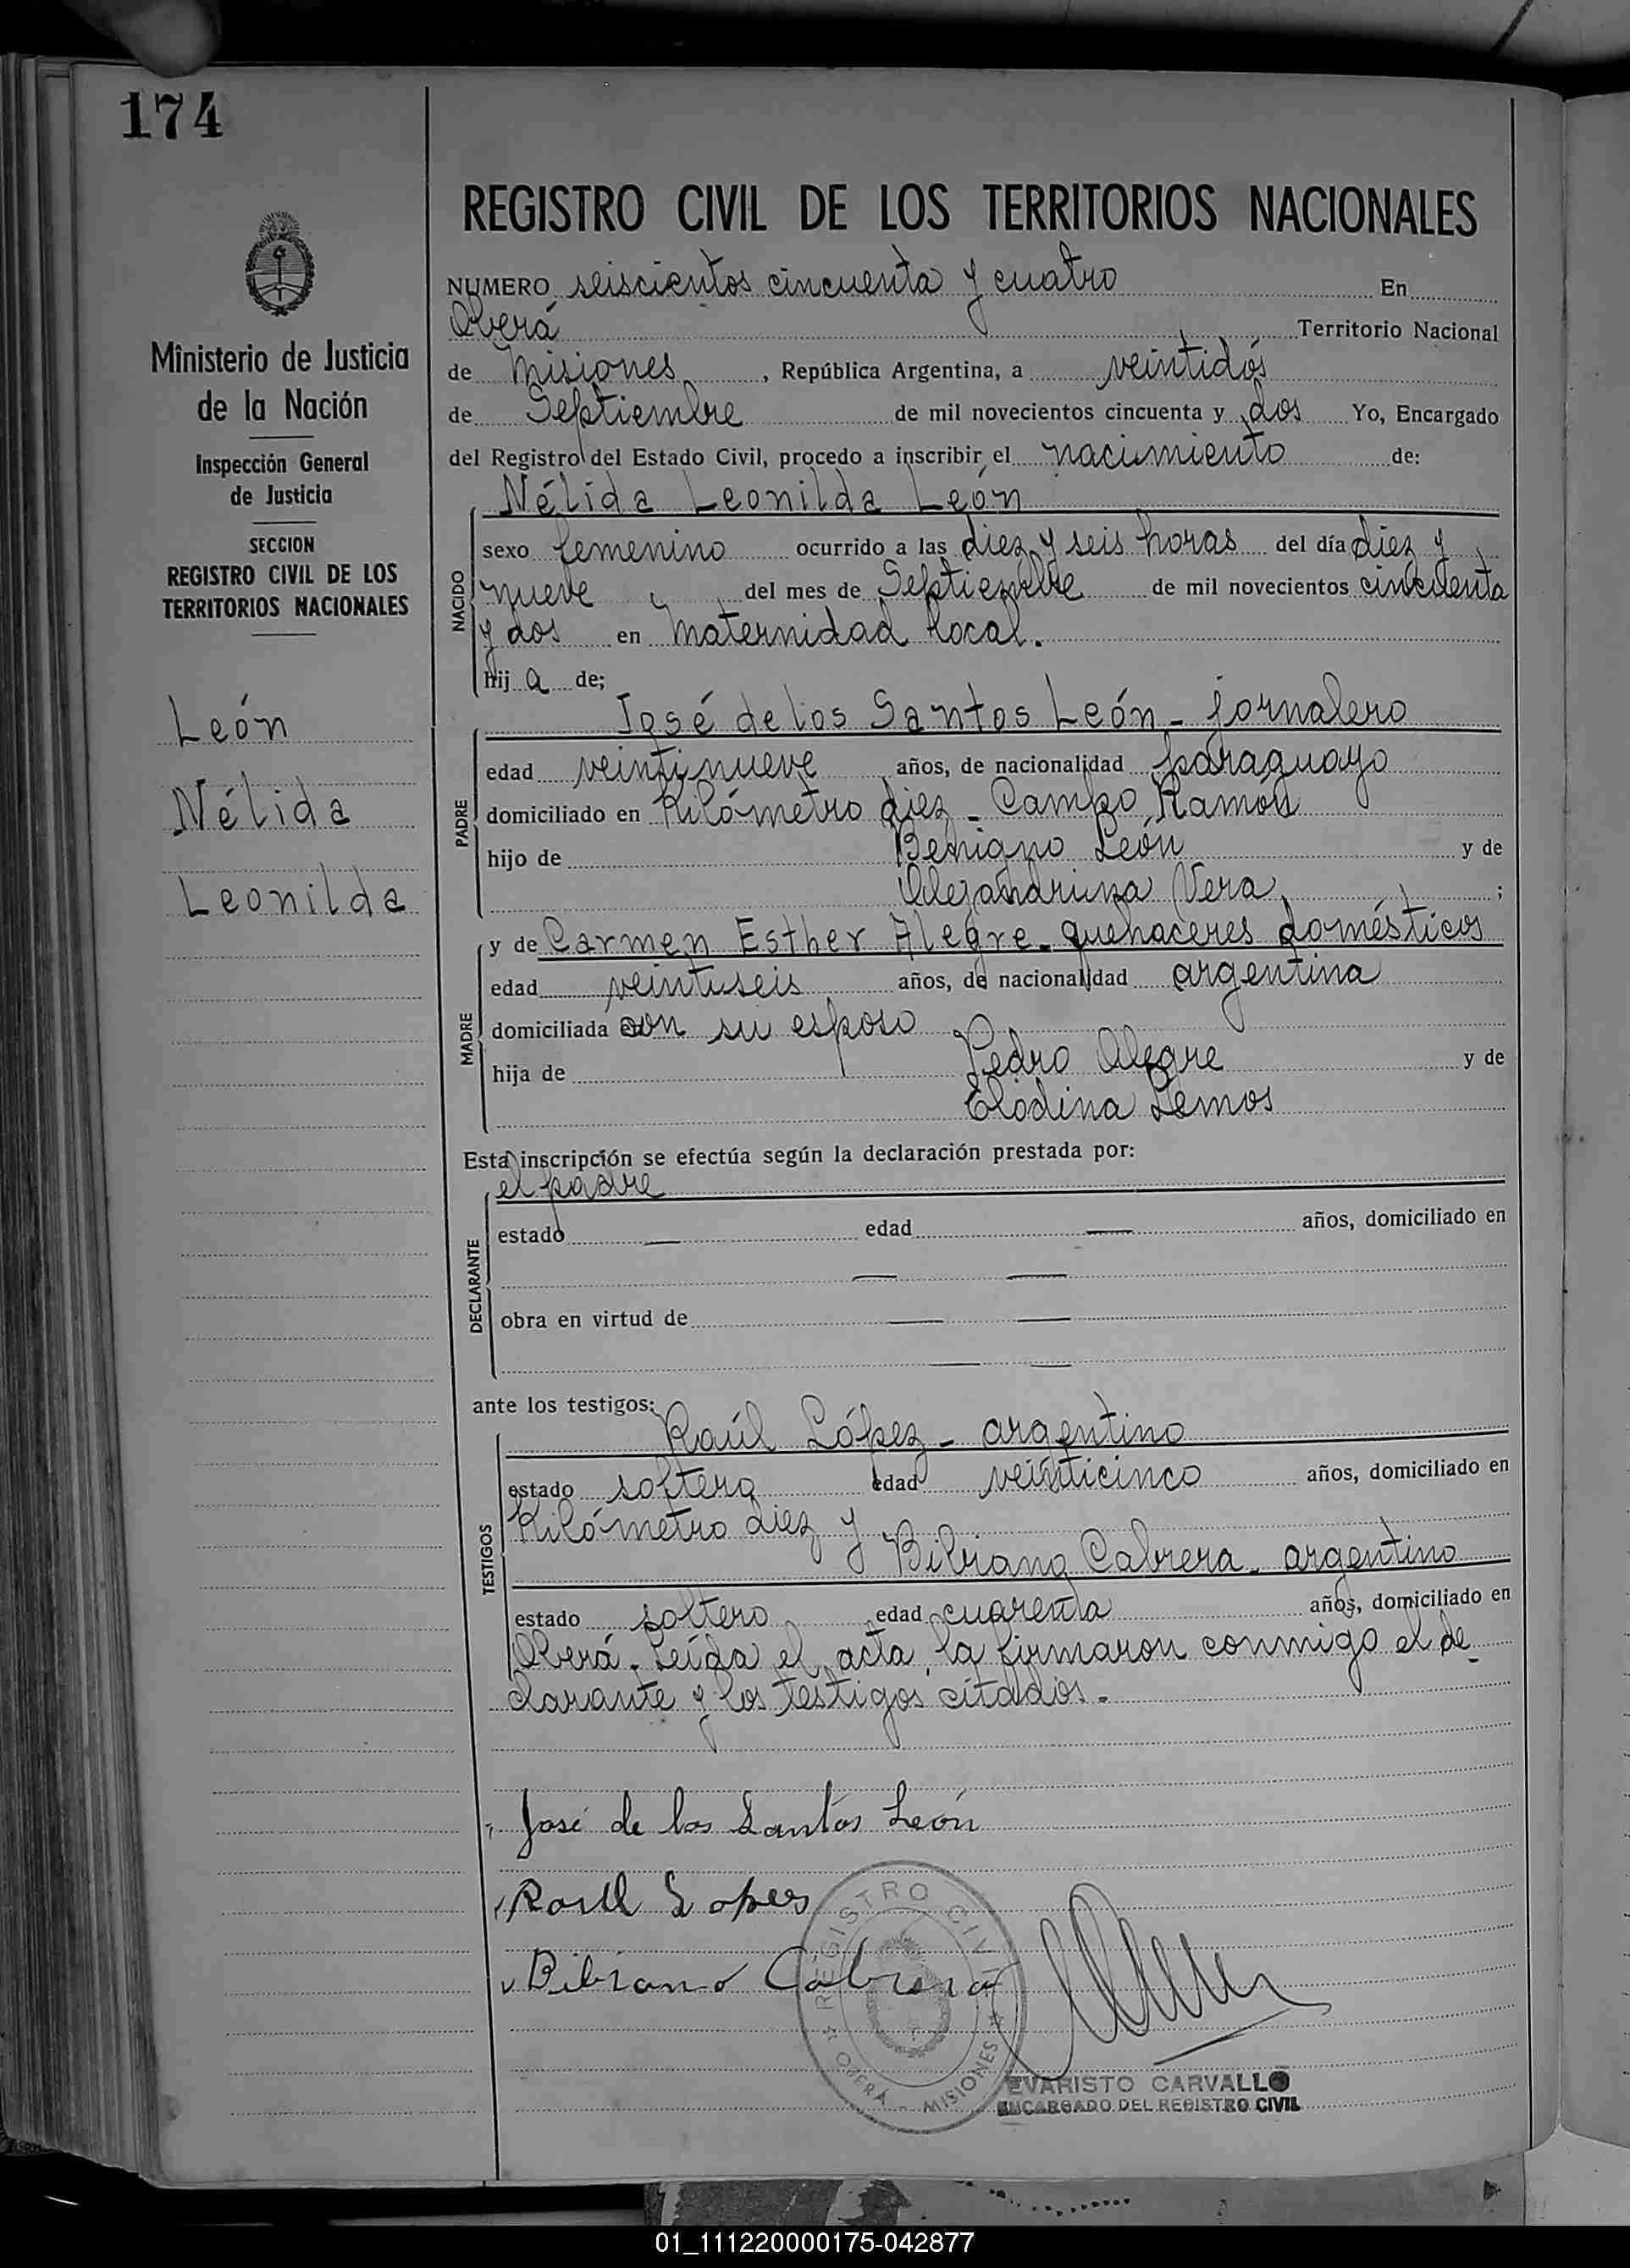 174
REGISTRO CIVIL DE LOS TERRITORIOS NACIONALES
Ministerio de Justicia
de la Nación
Inspección General
de Justicia
SECCION
REGISTRO CIVIL DE LOS
TERRITORIOS NACIONALES
León
Nélida
Leonilda
NUMERO seiscientos cincuenta y cuatro En
Oberá Territorio Nacional
de Misiones, República Argentina, a veintidós
de Septiembre de mil novecientos cincuenta y dos Yo, Encargado
del Registro del Estado Civil, procedo a inscribir el nacimiento de:
Nélida Leonilda León
NACIDO
sexo femenino ocurrido a las diez y seis horas del día diez y
nueve del mes de Septiembre de mil novecientos cincuenta
y dos en Maternidad local.
hij a de;
José de los Santos León - jornalero
PADRE
edad veintinueve años, de nacionalidad paraguayo
domiciliado en Kilómetro diez - Campo Ramón
hijo de Benigno León y de
Alejandrina Vera ;
y de Carmen Esther Alegre - quehaceres domésticos
MADRE
edad veintiseis años, de nacionalidad argentina
domiciliada con su esposo
hija de Pedro Alegre y de
Elodina Lemos
Esta inscripción se efectúa según la declaración prestada por:
el padre
DECLARANTE
estado — edad — años, domiciliado en
— —
obra en virtud de — —
— —
ante los testigos:
Raúl López - argentino
TESTIGOS
estado soltero edad veinticinco años, domiciliado en
Kilómetro diez y
Bibiano Cabrera - argentino
estado soltero edad cuarenta años, domiciliado en
Oberá. Leída el acta, la firmaron conmigo el de
clarante y los testigos citados.-
José de los Santos León
Raúl Lopes
Bibiano Cabrera
REGISTRO CIVIL
OBERÁ - MISIONES
EVARISTO CARVALLO
ENCARGADO DEL REGISTRO CIVIL
01_111220000175-042877